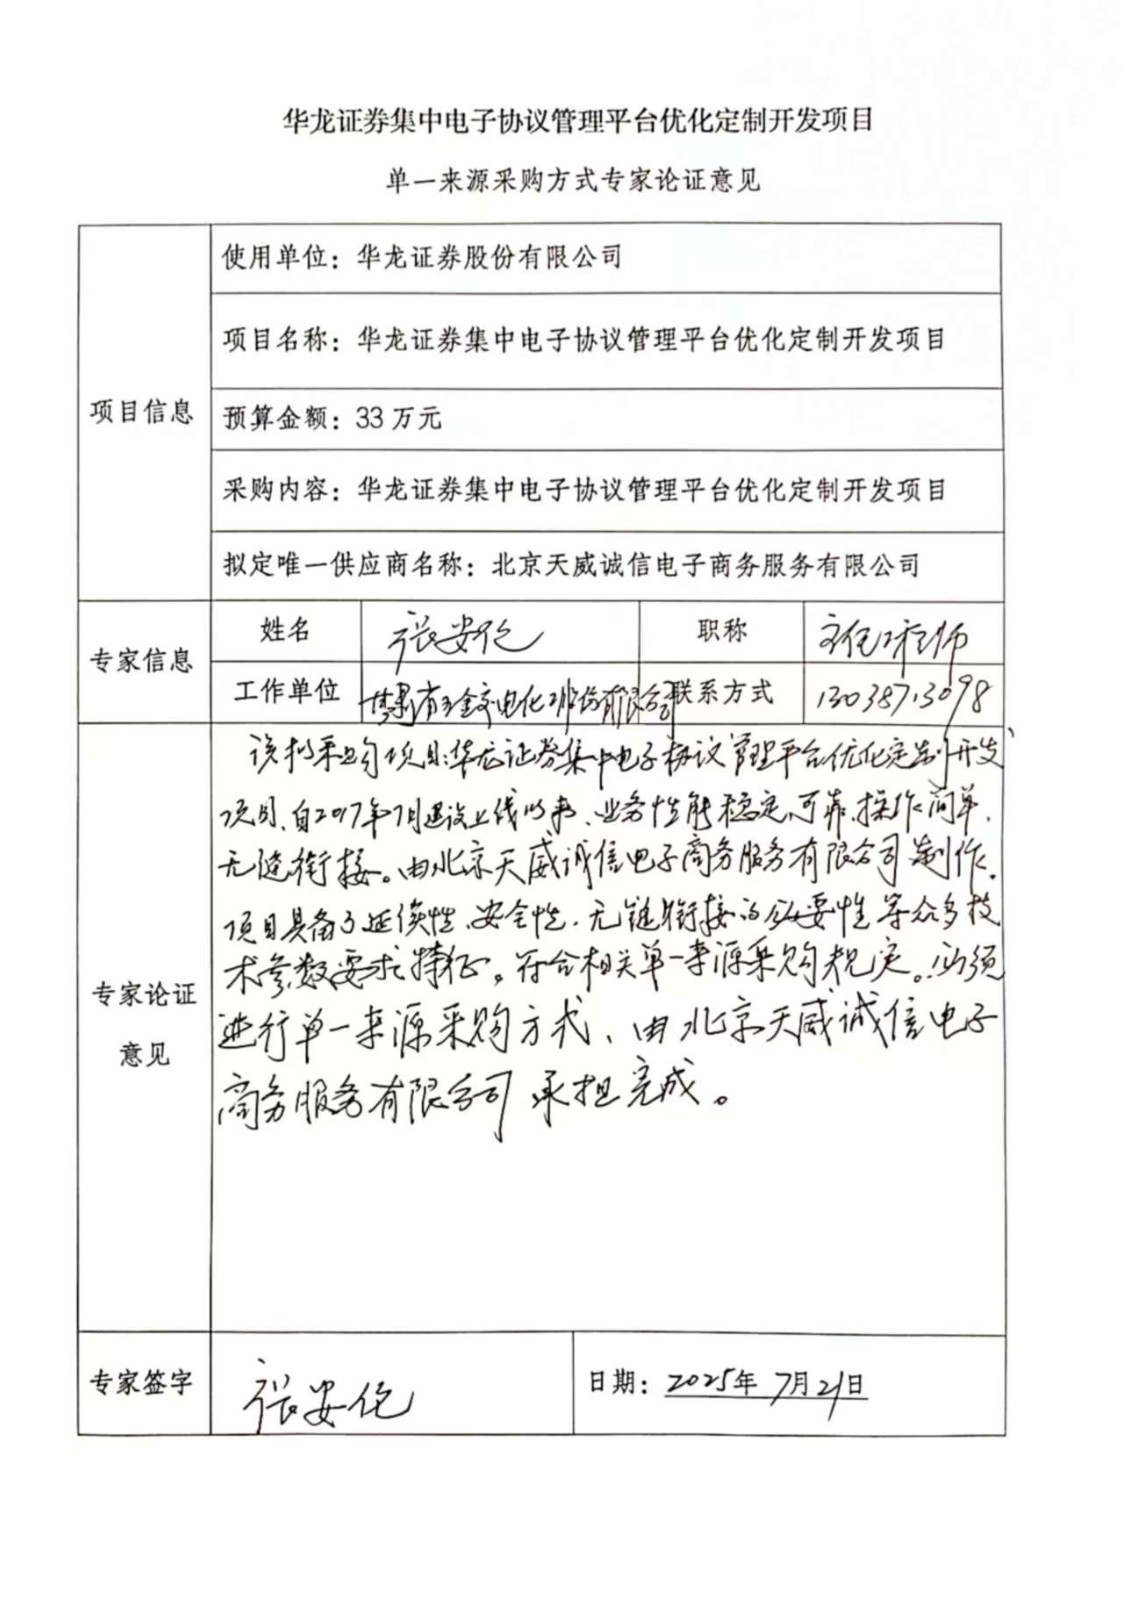 华龙证券集中电子协议管理平台优化定制开发项目
单一来源采购方式专家论证意见
项目信息
使用单位：华龙证券股份有限公司
项目名称：华龙证券集中电子协议管理平台优化定制开发项目
预算金额：33万元
采购内容：华龙证券集中电子协议管理平台优化定制开发项目
拟定唯一供应商名称：北京天威诚信电子商务服务有限公司
专家信息
姓名 张安伦 职称 主任工程师
工作单位 甘肃省五金交电化工股份有限公司 联系方式 13038713098
专家论证意见
该拟采购项目:华龙证券集中电子协议管理平台优化定制开发
项目、自2017年7月建设上线以来、业务性能稳定、可靠、操作简单、
无缝衔接。由北京天威诚信电子商务服务有限公司制作。
项目具备了延续性、安全性、无缝衔接的必要性等众多技
术参数要求特征。符合相关单一来源采购规定。必须
进行单一来源采购方式、由北京天威诚信电子
商务服务有限公司承担完成。
专家签字 张安伦 日期：2025年7月21日